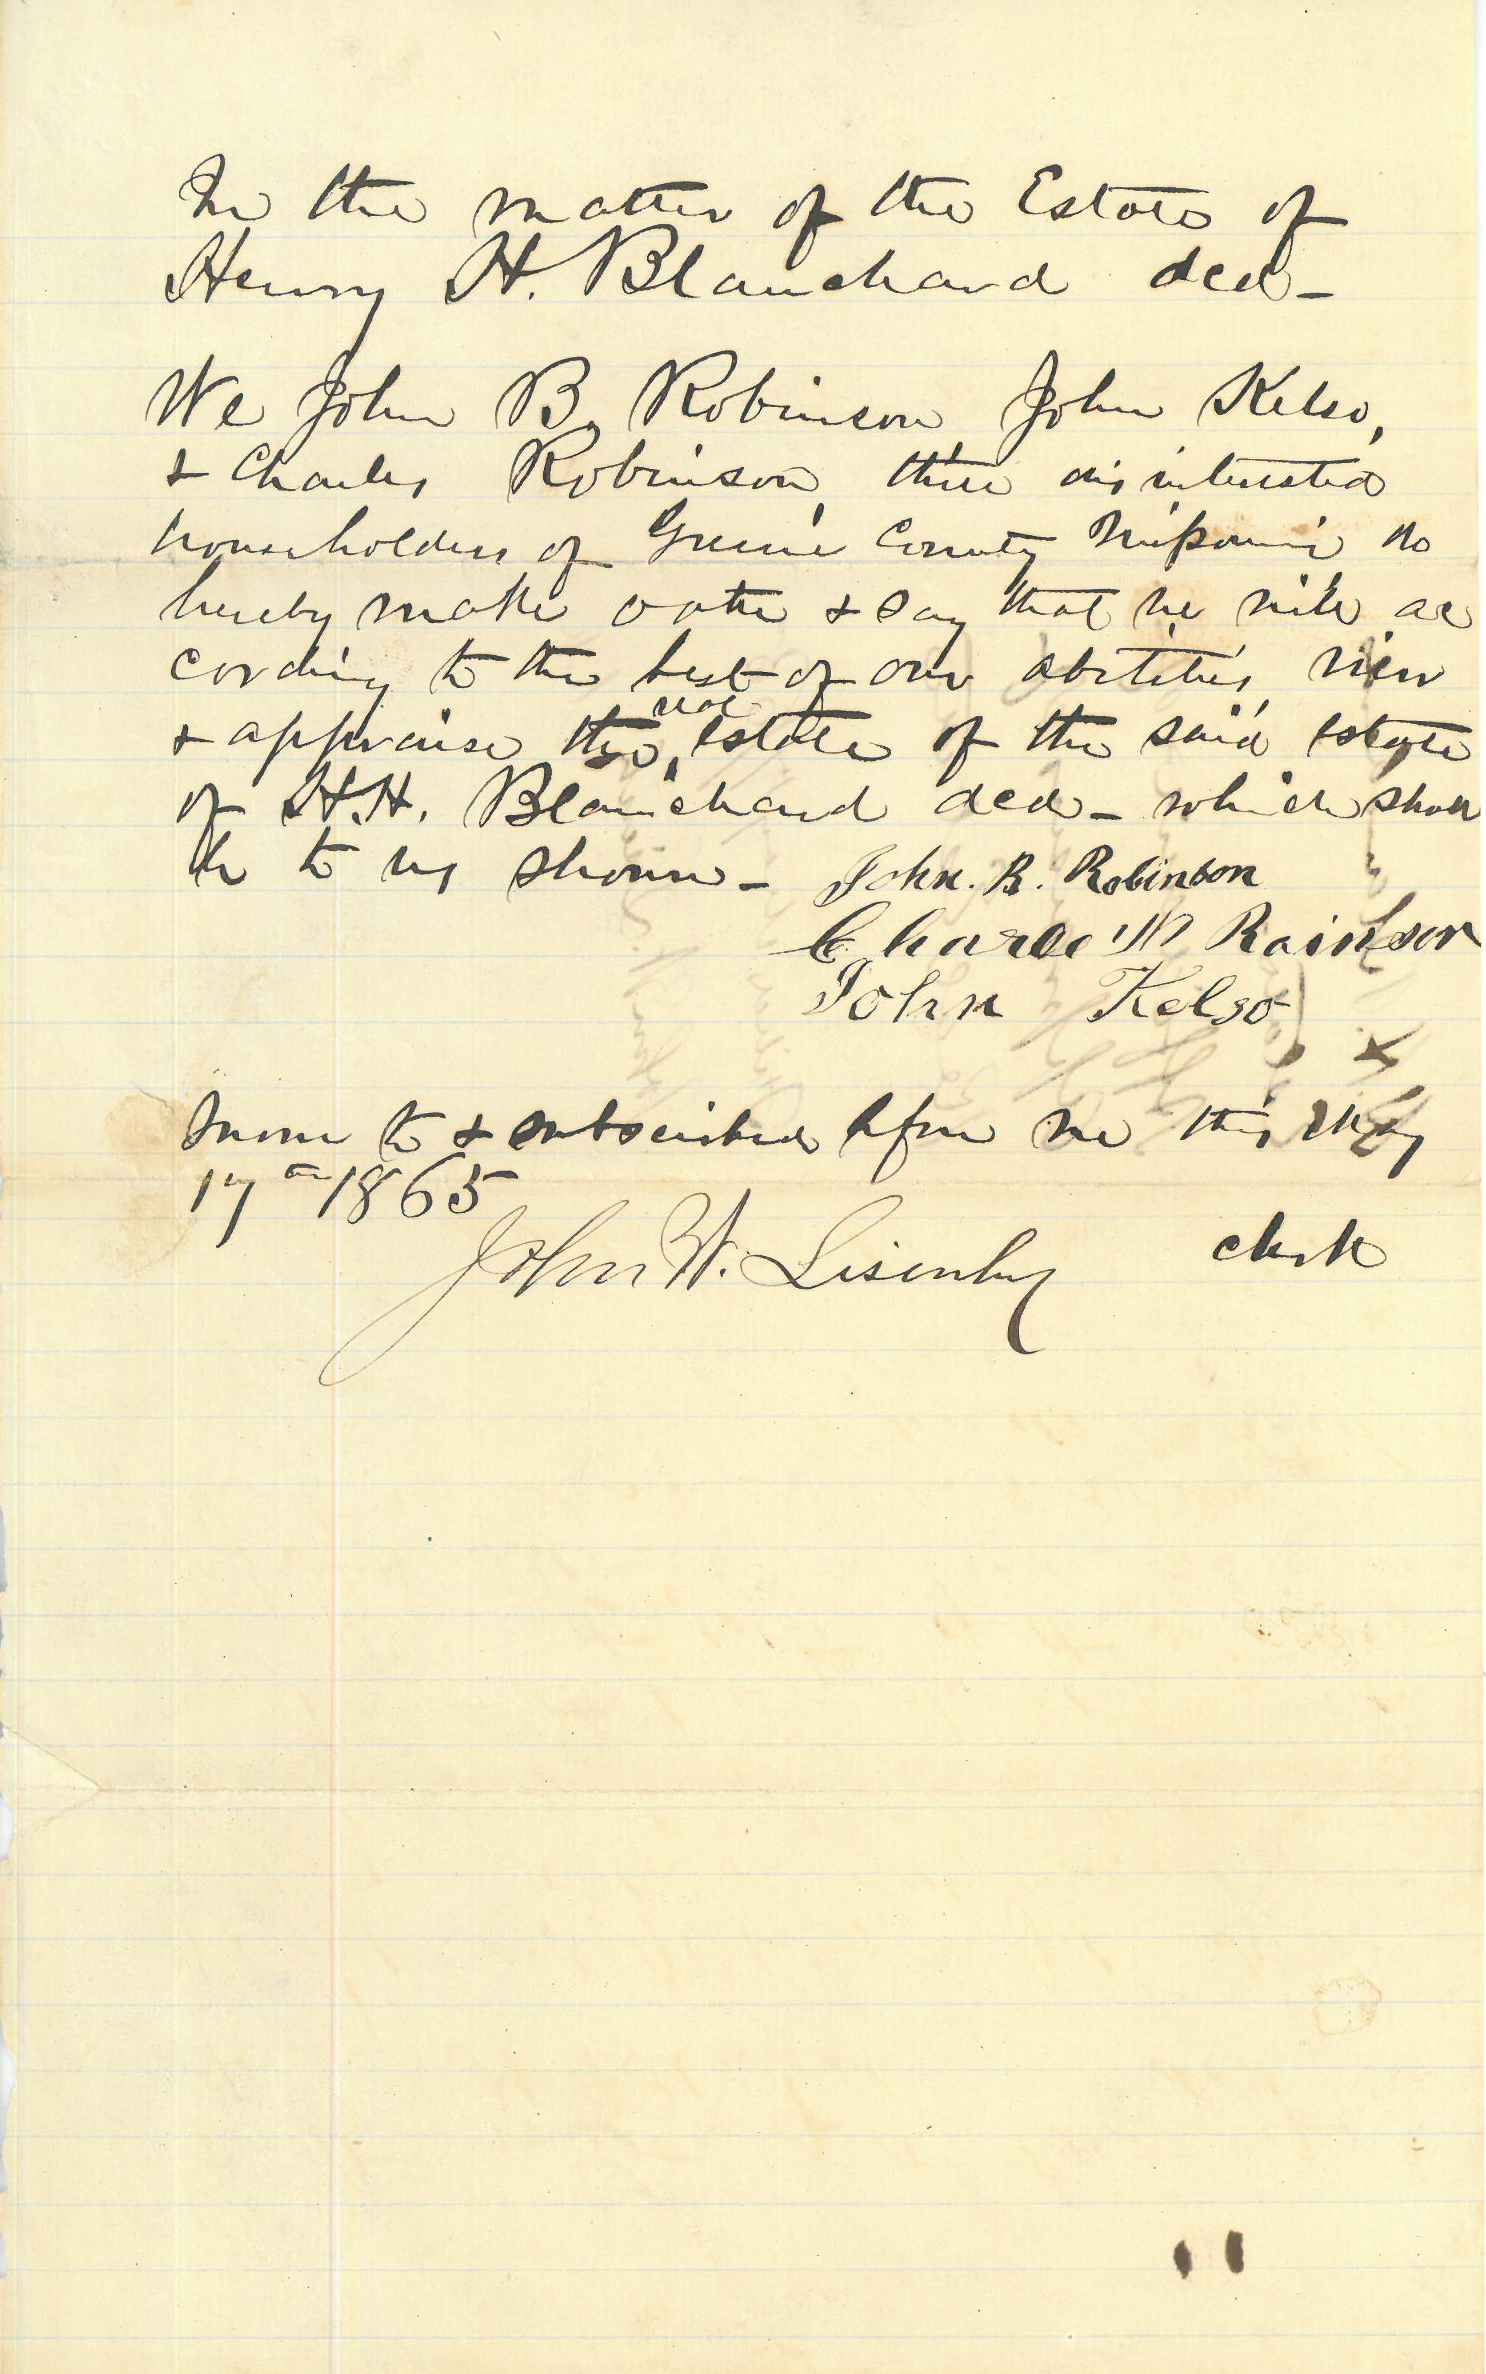 In the matter of the Estate of
Henry H. Blanchard decd –
We John B. Robinson John Kelso,
& Charles Robinson, three disinterested
householders of Greene County Missouri do
hereby make oath & say that we will ac
cording to the best of our abilities, view
& appraise the real estate of the said estate
of H.H. Blanchard decd – which shall
be to us shown –
John. B. Robinson
John Kelso
Sworn to & subscribed before me this May
17th 1865
John W. Lisenby clerk